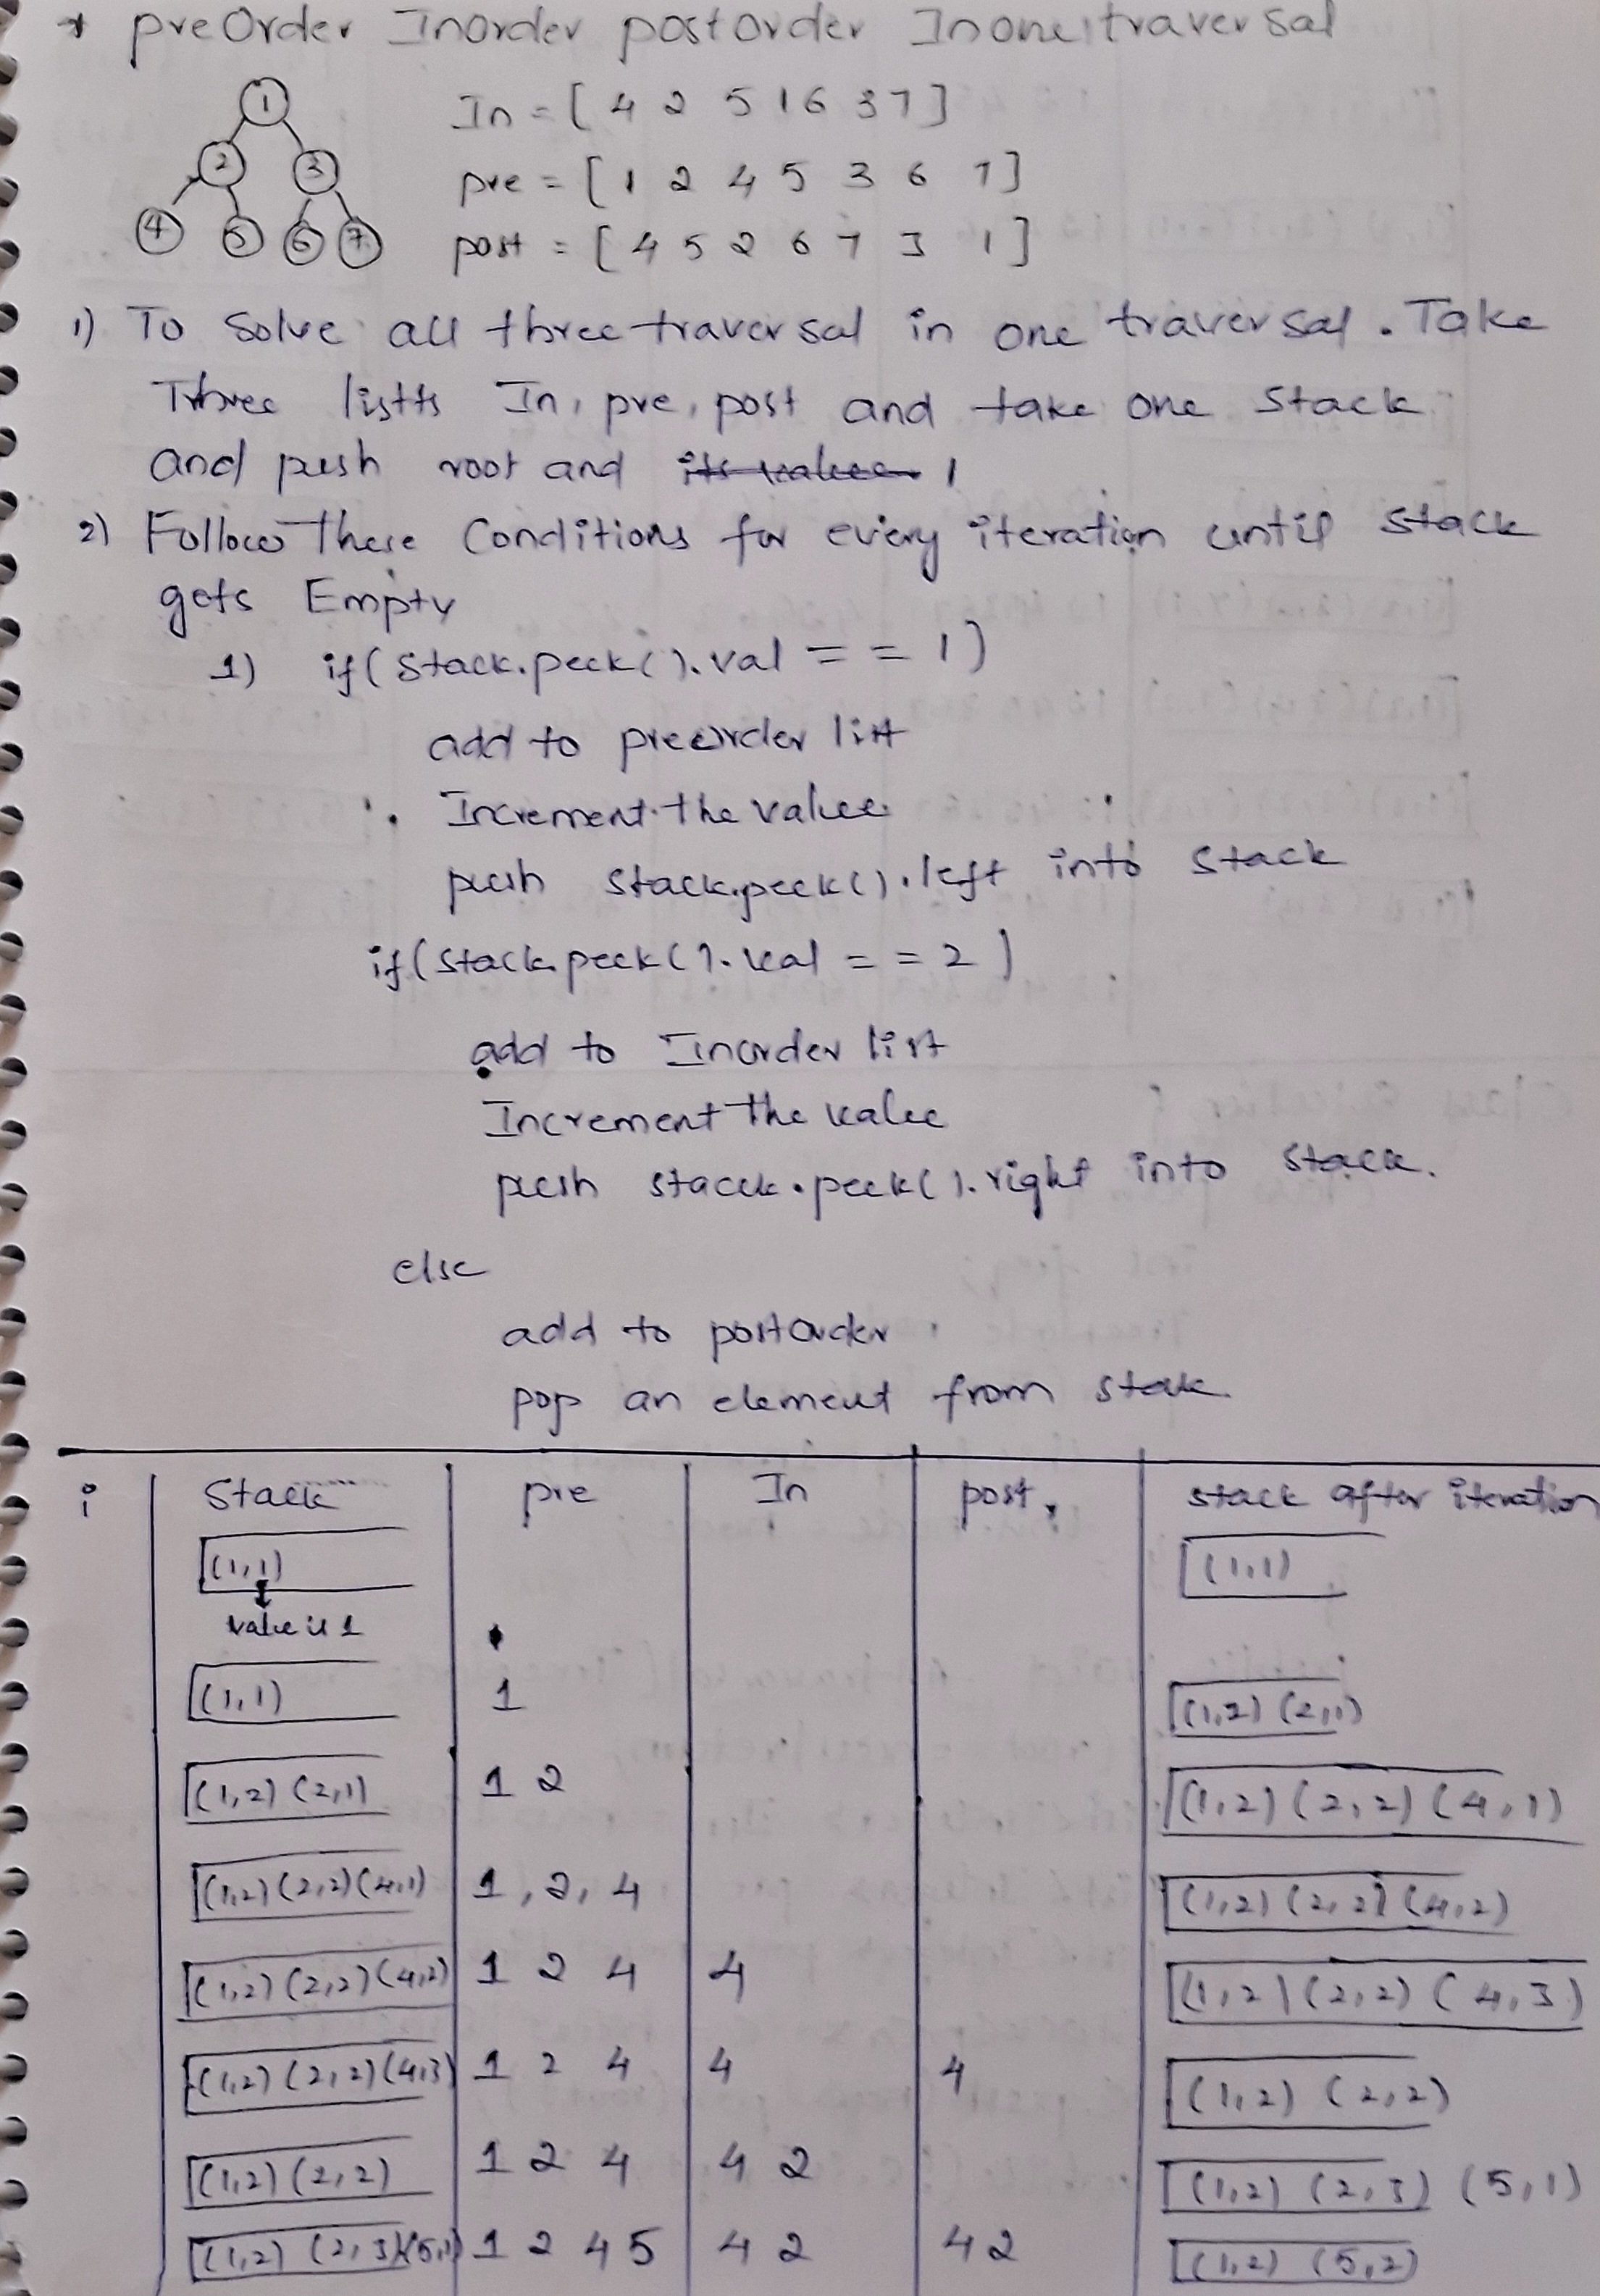 * preOrder Inorder postorder In one traversal
1
2 3
4 5 6 7
In = [ 4 2 5 1 6 3 7 ]
pre = [ 1 2 4 5 3 6 7 ]
post = [ 4 5 2 6 7 3 1 ]
1) To Solve all three traversal in one traversal. Take
Three lists In, pre, post and take one Stack
and push root and its value 1
2) Follow these Conditions for every iteration until stack
gets Empty
1) if( stack.peek().val == 1)
add to preorder list
Increment the value
push stack.peek().left into stack
if(stack.peek().val == 2)
add to Inorder list
Increment the value
push stack.peek().right into stack.
else
add to postorder
pop an element from stack.
i Stack pre In post stack after iteration
(1,1) (1,1)
value is 1
(1,1) 1 (1,2) (2,1)
(1,2) (2,1) 1 2 (1,2) (2,2) (4,1)
(1,2) (2,2) (4,1) 1, 2, 4 (1,2) (2,2) (4,2)
(1,2) (2,2) (4,2) 1 2 4 4 (1,2) (2,2) (4,3)
(1,2) (2,2) (4,3) 1 2 4 4 4 (1,2) (2,2)
(1,2) (2,2) 1 2 4 4 2 (1,2) (2,3) (5,1)
(1,2) (2,3) (5,1) 1 2 4 5 4 2 4 2 (1,2) (5,2)